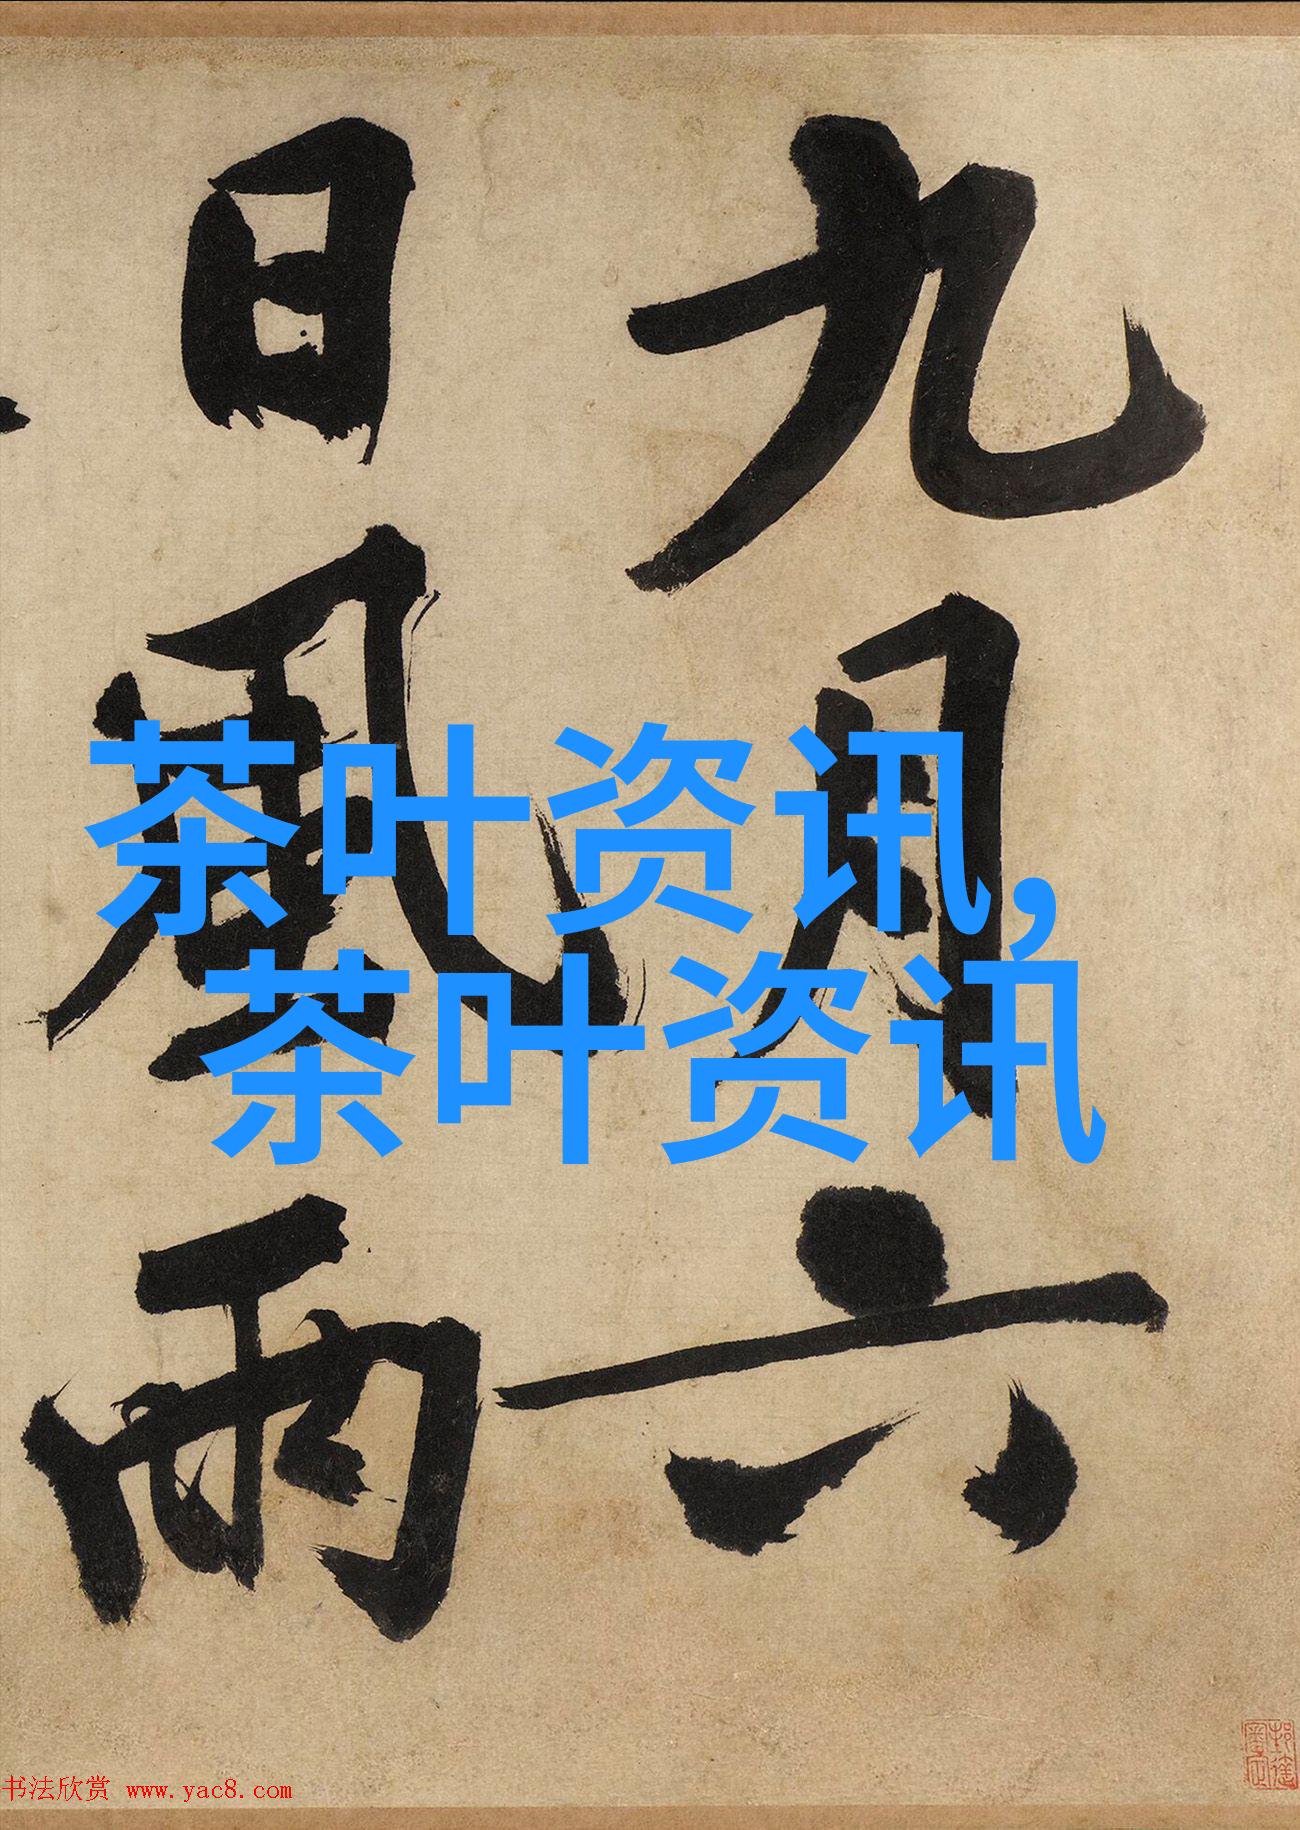 九月六
日風雨
茶叶资讯,
茶叶资讯
书法欣赏 www.yac8.com